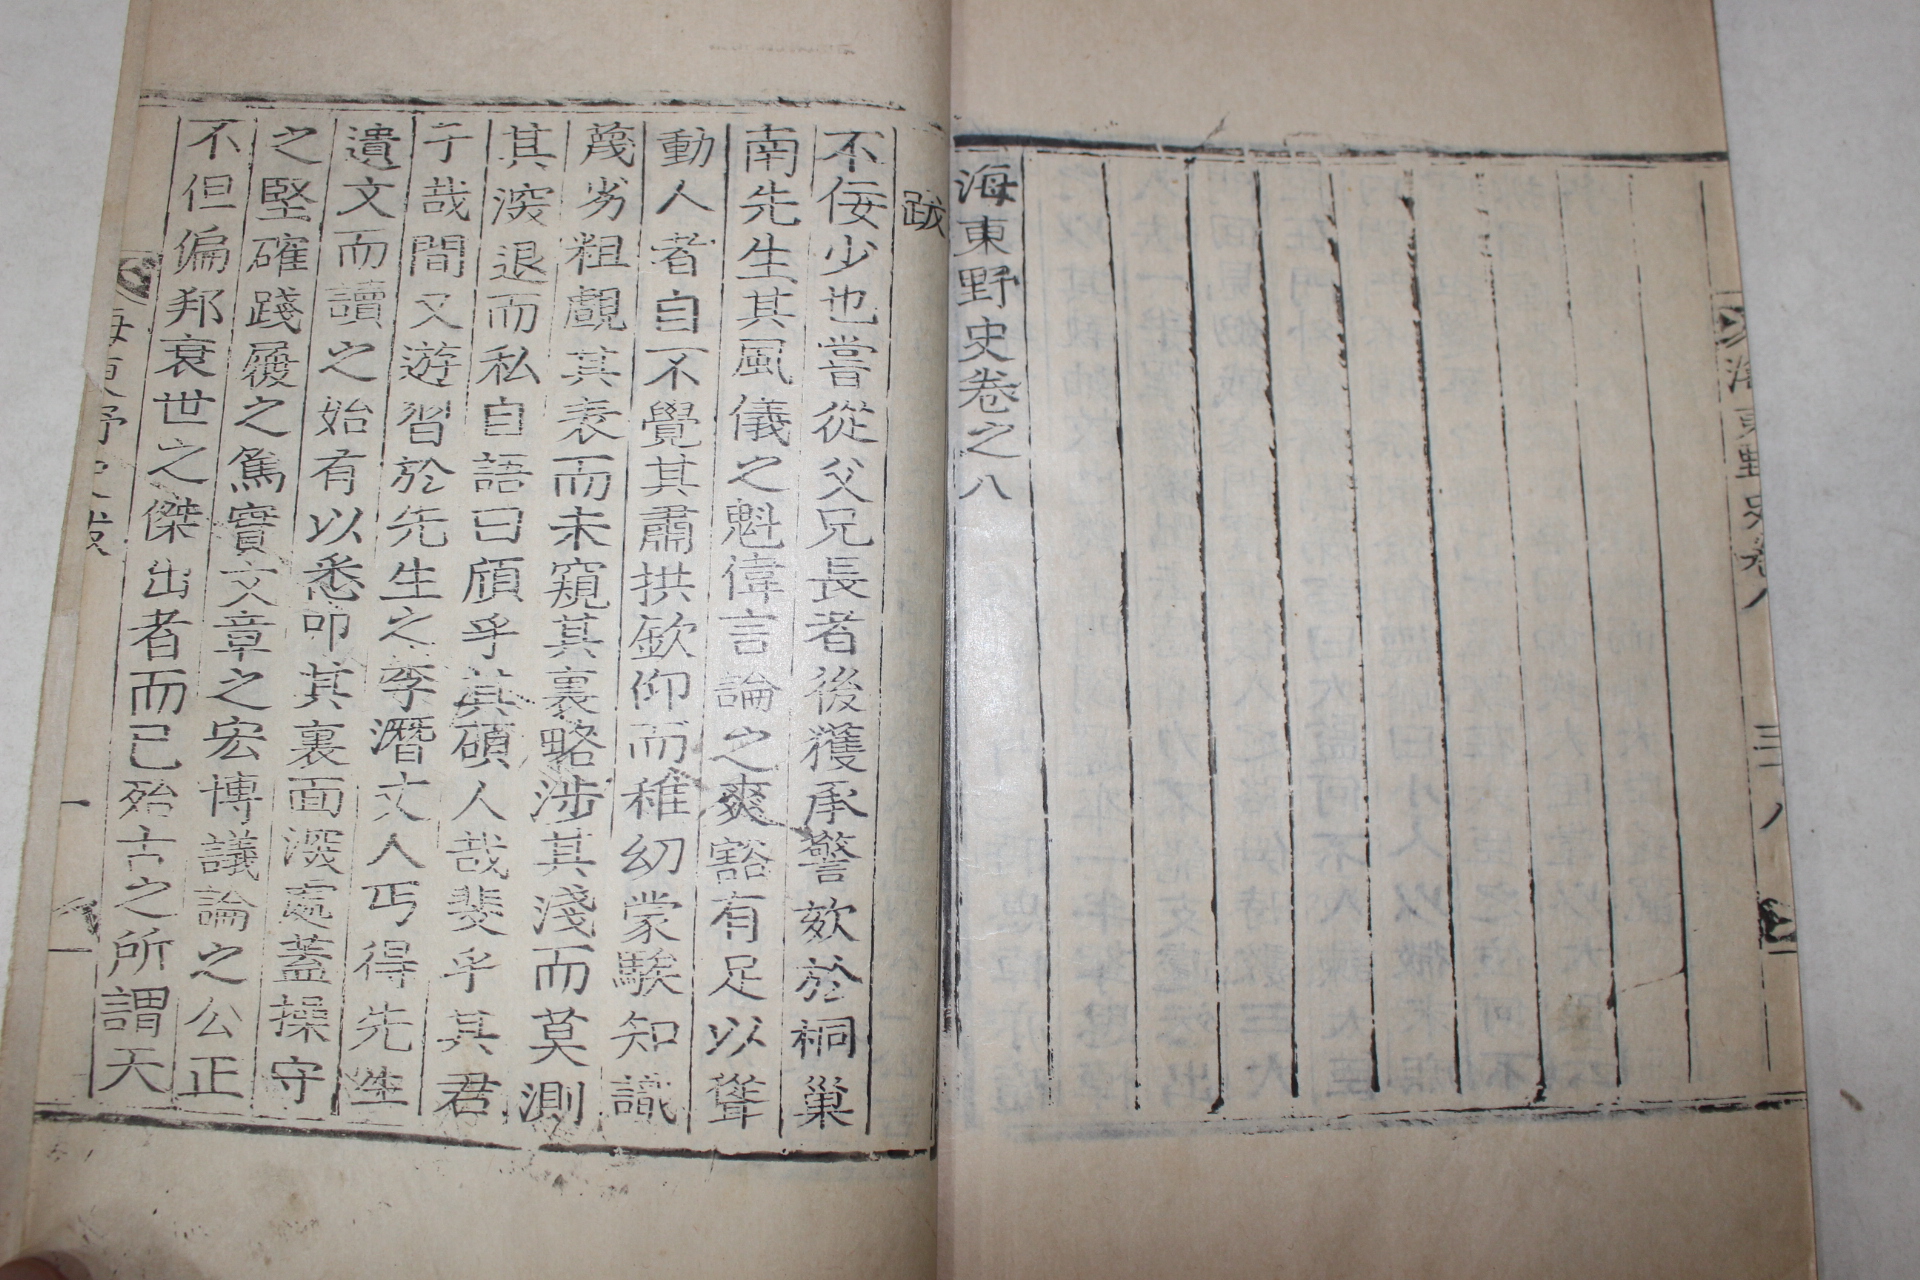 海東野史卷八
三十八
海東野史卷之八
跋
不佞少也嘗從父兄長者後獲承警欬於桐巢
南先生其風儀之魁偉言論之爽豁有足以聳
動人者自不覺其肅拱欽仰而稚幼蒙騃知識
蔑劣粗覿其表而未窺其裏略涉其淺而莫測
其深退而私自語曰頎乎其碩人哉斐乎其君
子哉間又遊習於先生之季潛丈人丐得先生
遺文而讀之始有以悉叩其裏面深處蓋操守
之堅確踐履之篤實文章之宏博議論之公正
不但偏邦衰世之傑出者而已殆古之所謂天
海東野史跋
一